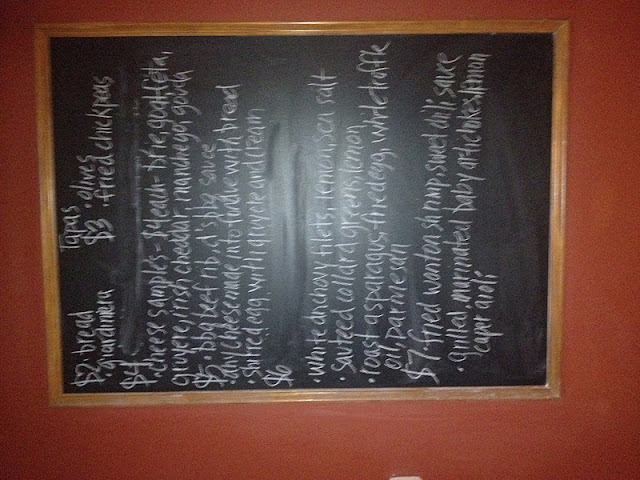 Tapas
$2 bread $3 • olives
• giardinera • fried chickpeas
$4
• cheese samples - $4 each - brie, goat feta,
gruyere, irish cheddar, manchego, gouda
$5 • bbq beef rib, d's bbq sauce
• any cheese made into fundue with bread
• shirred egg with gruyere and cream
$6
• white anchovy filets, lemon, sea salt
• sauteed collard greens, lemon
• roast asparagus, fried egg, white truffle
oil, parmesan
$7 fried wonton shrimp, sweet chili sauce
• grilled, marinated baby artichokes, lemon
caper aioli